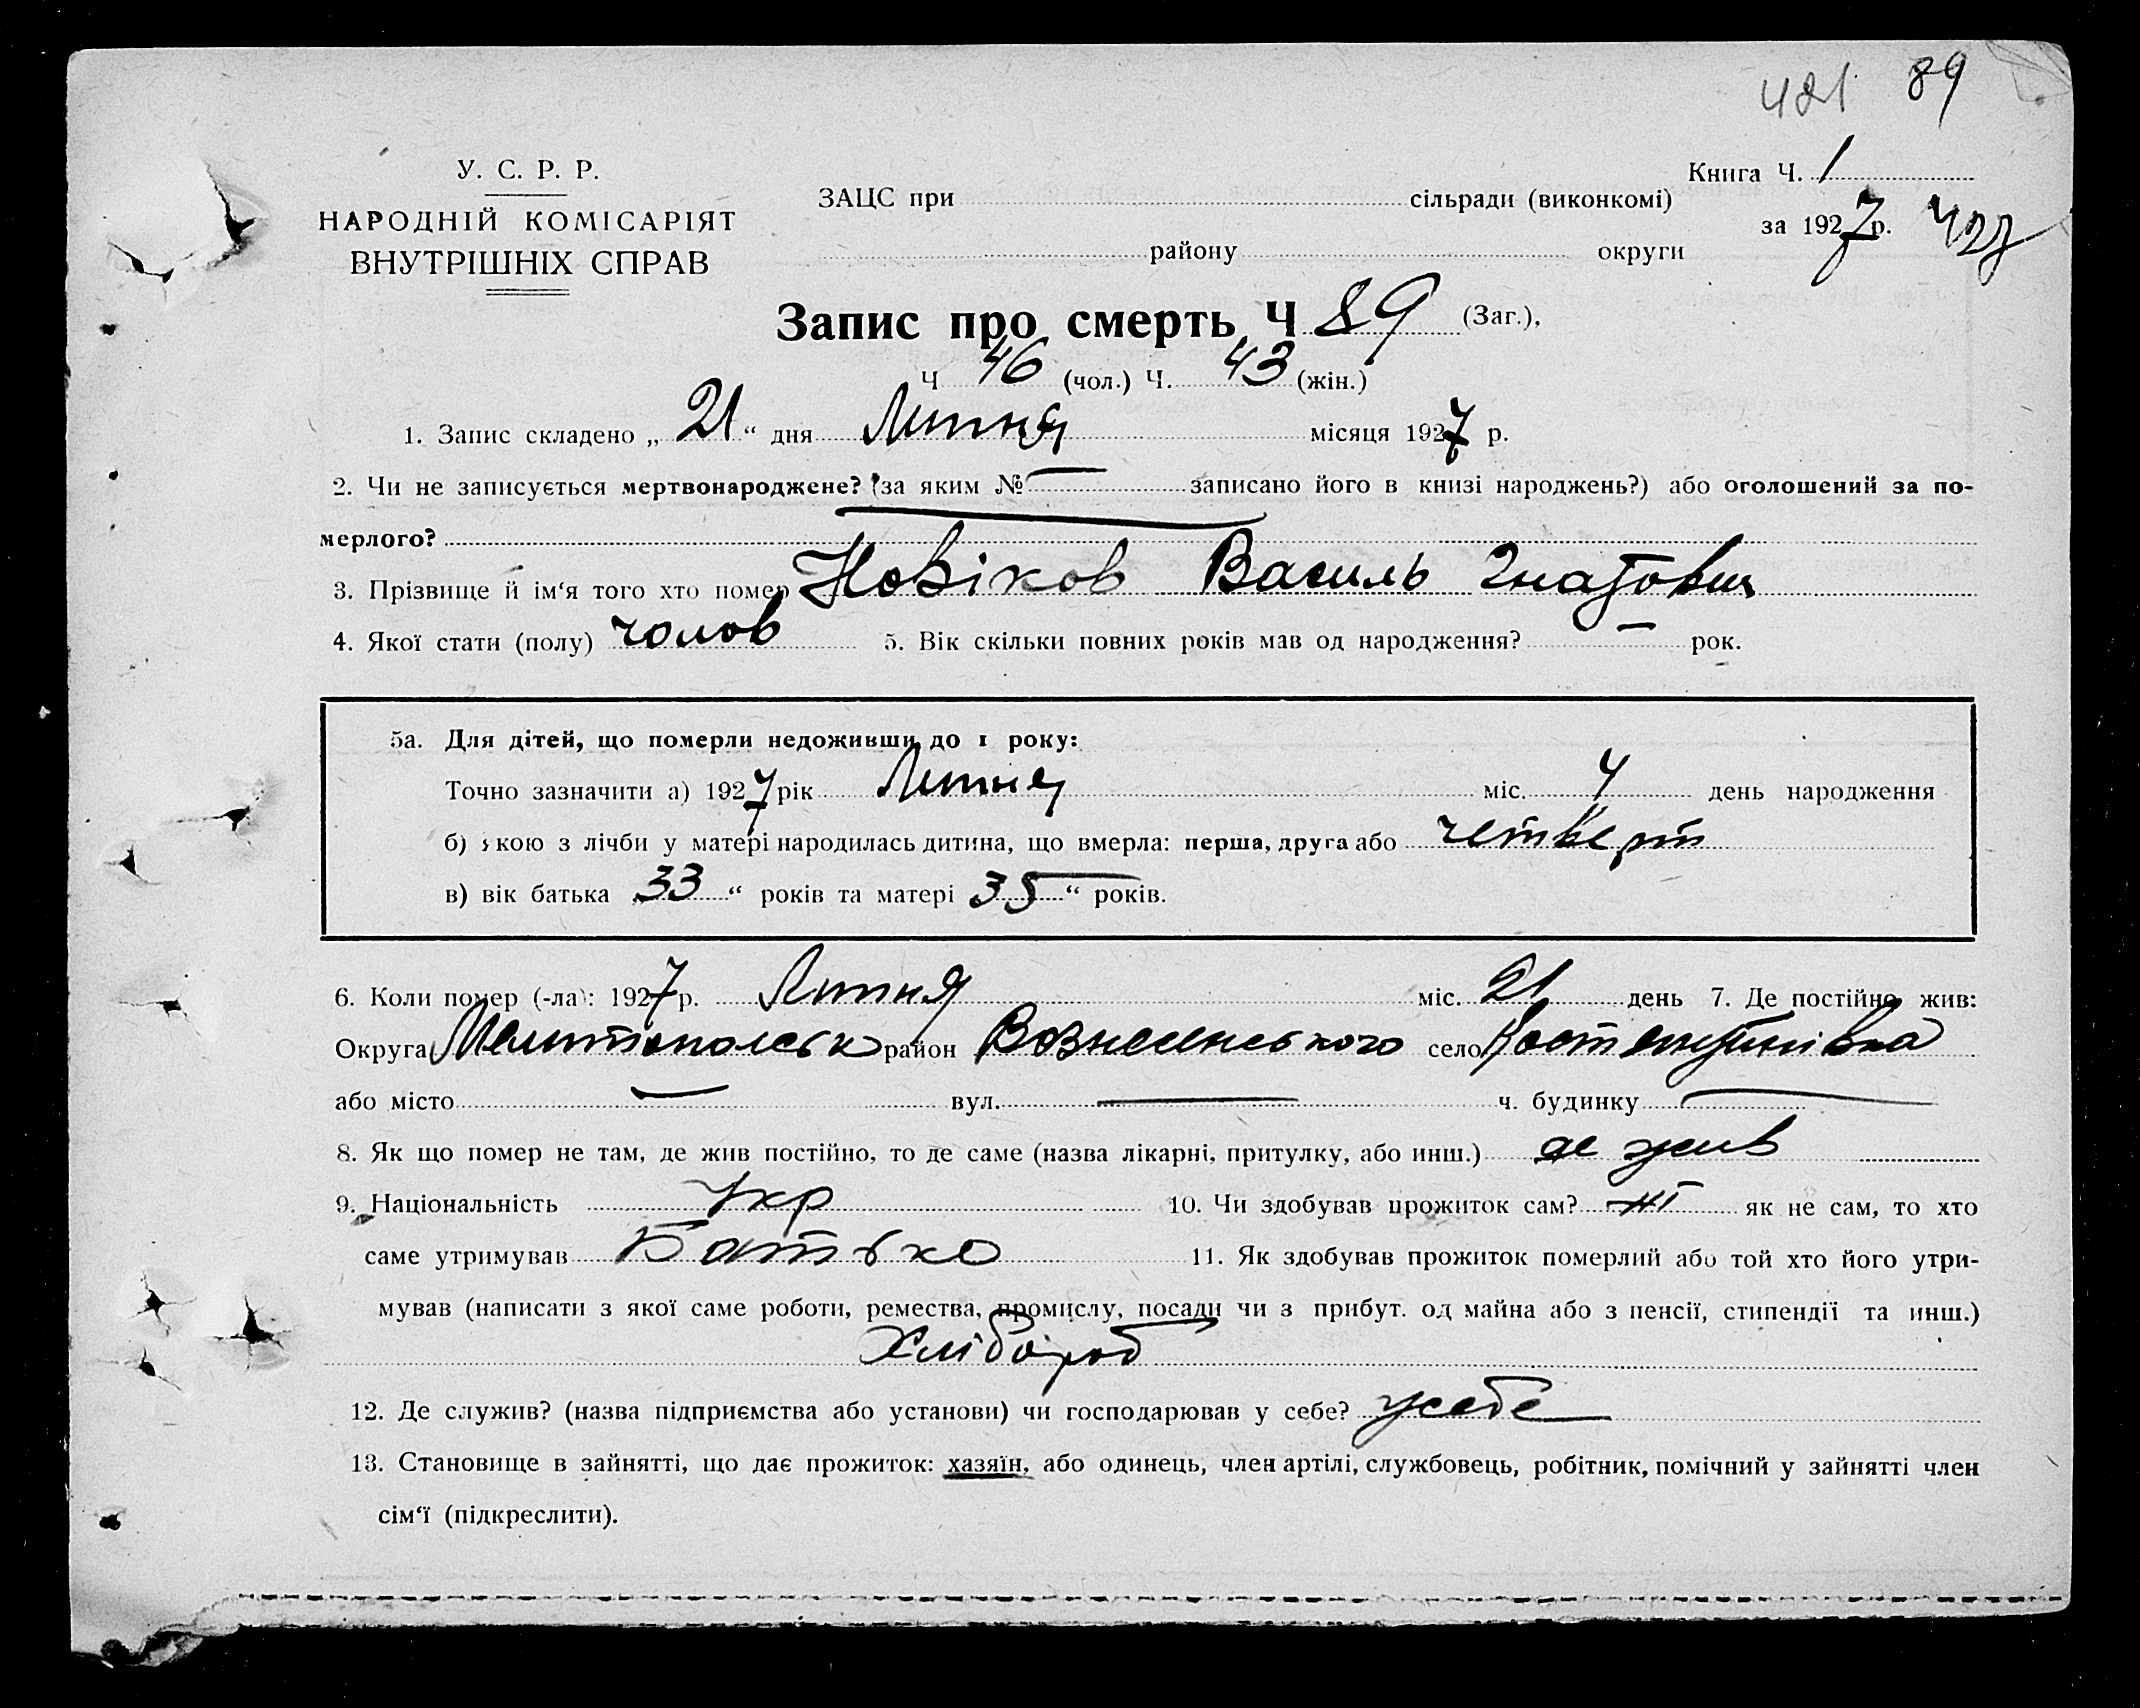 421 89
У. С. Р. Р.
НАРОДНІЙ КОМІСАРІЯТ
ВНУТРІШНІХ СПРАВ
ЗАЦС при сільради (виконкомі)
району округи
Книга Ч. 1
за 1927 р.
Запис про смерть Ч 89 (Заг.),
Ч 46 (чол.) Ч. 43 (жін.)
1. Запис складено „ 21 “ дня Лютня місяця 1927 р.
2. Чи не записується мертвонароджене? (за яким № — записано його в книзі народжень?) або оголошений за по-
мерлого?
3. Прізвище й ім‘я того хто помер Новіков Василь Гнатович
4. Якої стати (полу) чолов 5. Вік скільки повних років мав од народження? — рок.
5а. Для дітей, що померли недоживши до 1 року:
Точно зазначити а) 1927 рік Лютня міс. 4 день народження
б) якою з лічби у матері народилась дитина, що вмерла: перша, друга або четверт
в) вік батька „ 33 “ років та матері „ 35 “ років.
6. Коли помер (-ла): 1927 р. Лютня міс. 21 день 7. Де постійно жив:
Округа Мелитопольськ район Вознесенського село Костянтинівка
або місто — вул. — ч. будинку —
8. Як що помер не там, де жив постійно, то де саме (назва лікарні, притулку, або инш.) де жив
9. Національність Укр 10. Чи здобував прожиток сам? ні як не сам, то хто
саме утримував Батько 11. Як здобував прожиток померлий або той хто його утри-
мував (написати з якої саме роботи, ремества, промислу, посади чи з прибут. од майна або з пенсії, стипендії та инш.)
Хлібороб
12. Де служив? (назва підприємства або установи) чи господарював у себе? у себе
13. Становище в зайнятті, що дає прожиток: хазяїн, або одинець, член артілі, службовець, робітник, помічний у зайнятті член
сім‘ї (підкреслити).